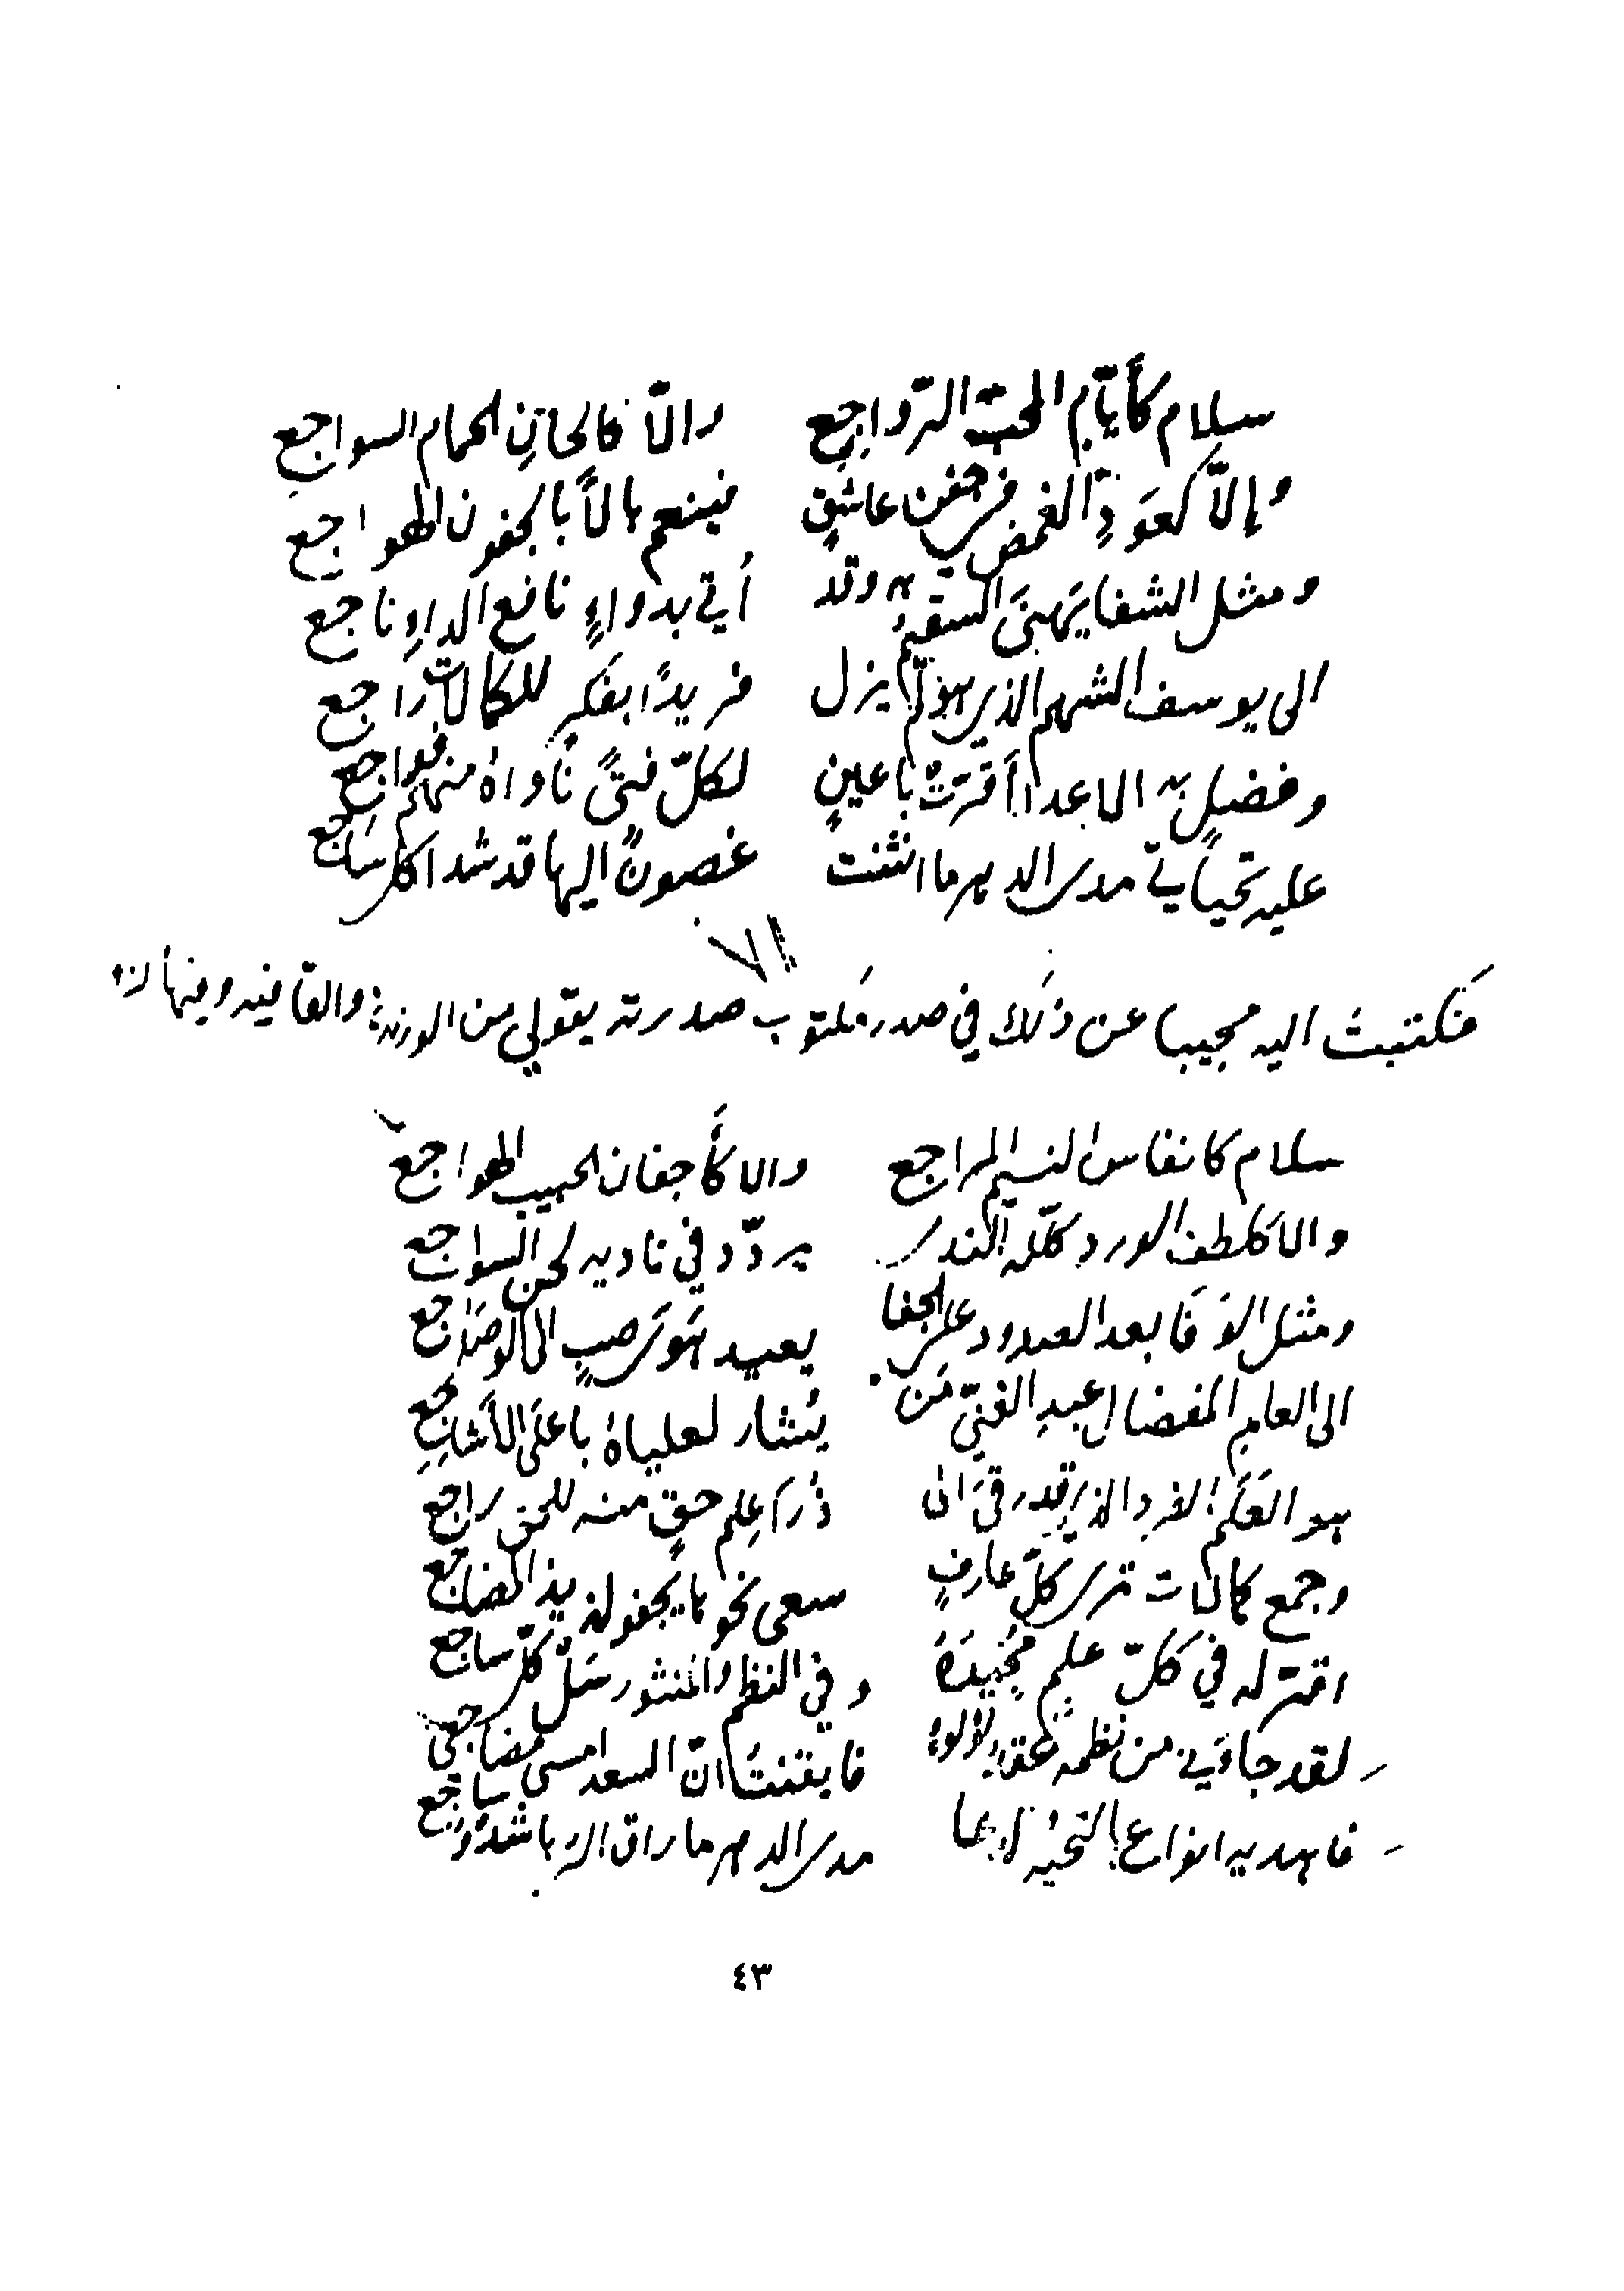 سلام كأيّام المحبّ الرّواجِع والّا فالحانِ الحمام السواجع
وإلّا كعَودِ الغمض في جفن عاشقٍ فينعم بالاً بالجفون الهواجع
ومثل الشفا يَهنىَ السقيمُ به وقد أتى بدواءٍ نافع الداءِ ناجع
الى يوسف الشهم الذي هو لم يزل فريدًا بفكرٍ للكمالات راجع
وفضلٍ به الاعدا أقرّت باعينٍ لكلّ فتىً ناواهُ منهم فواجع
عليه تحياتي مدى الدهر ما انثنت غصونٌ اليها قد شدا كل ساجع
٧١
فكتبت اليه مجيبا عن ذلك في صدر مكتوب صدرته بقولي من الوزن والقافيه وفيها
سلام كانفاس النسيم المراجع والا كأجفان الحبيب الهواجع
والا كلطف الورد كلّله الندى يردّد في ناديه لحن السواجع
ومثل الوَفَا بعد الصدود على الجفا يعيد هَوَى صبٍ الى الوصل راجع
الى العالم المفضال عبدِ الغنيّ مَن يُشار لعلياهُ باعلَى الأشاجعِ
هو العَلَم الفرد الذي قد رقىَ الى ذُرَا عِلم حقٍ منه للحق راجع
وجمع كمالات ترى كلّ عارفٍ سعى نحوها يجفو لذيذ المضاجع
اقرّ له في كلّ علمٍ مُجيدَهُ وفي النظم والمنثور سَل كلّ ساجع
لقد جاءَني من نظمه عقد لؤلؤٍ فايقنتُ انّ السعد امسى مضاجعي
فاهديه انواع التحيّه مدى الدهر ما راق الرُبا شدوُ ساجع
٤٣